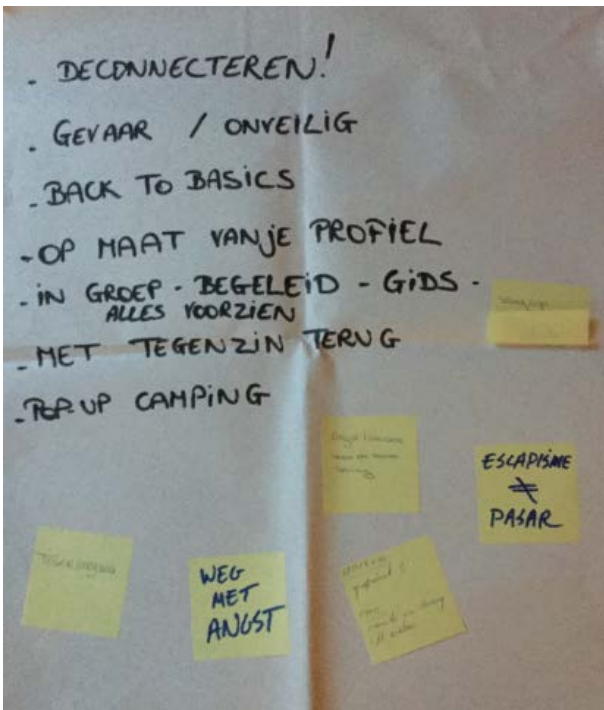 - DECONNECTEREN!
- GEVAAR / ONVEILIG
- BACK TO BASICS
- OP MAAT VAN JE PROFIEL
- IN GROEP - BEGELEID - GIDS -
ALLES VOORZIEN
- MET TEGENZIN TERUG
- POP-UP CAMPING
ESCAPISME
≠
PASAR
WEG
MET
ANGST